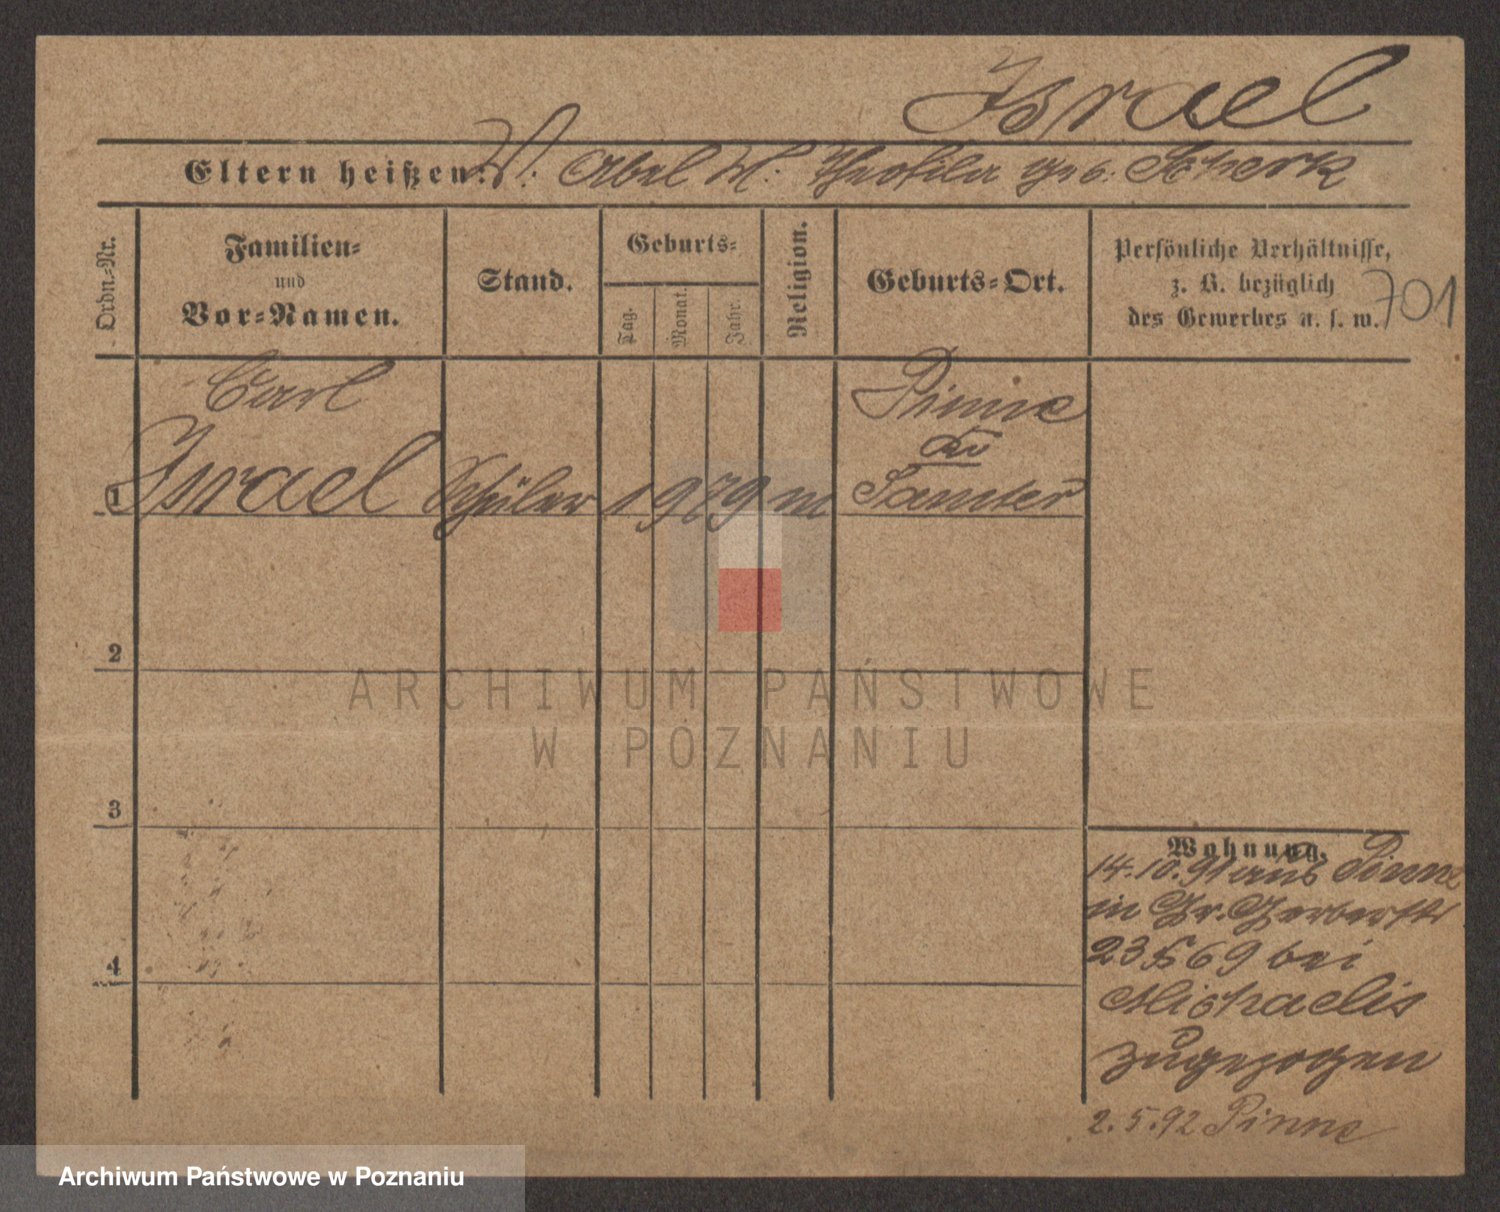 Israel
Eltern heißen: V. Abel M. Theofila geb. Scherk
Ordn.-Nr.
Familien-
und
Vor-Namen.
Stand.
Geburts-
Tag.
Monat.
Jahr.
Religion.
Geburts-Ort.
Persönliche Verhältnisse,
z. B. bezüglich
des Gewerbes u. s. w.
701
Carl
1 Israel Schüler 1 9 79 m
Pinne
Samter
2
3
4
Wohnung.
14.10.91 aus Pinne
in Gr. Gerberstr
23 569 bei
Michaelis
zugezogen
2.5.92 Pinne
ARCHIWUM PAŃSTWOWE
W POZNANIU
Archiwum Państwowe w Poznaniu